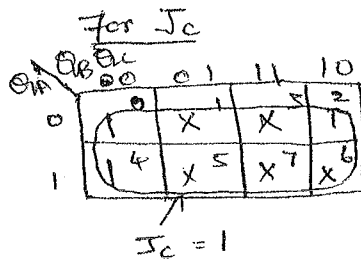 For Jc
QA QB QC
00 01 11 10
0 1 0 X 1 X 3 1 2
1 1 4 X 5 X 7 X 6
Jc = 1